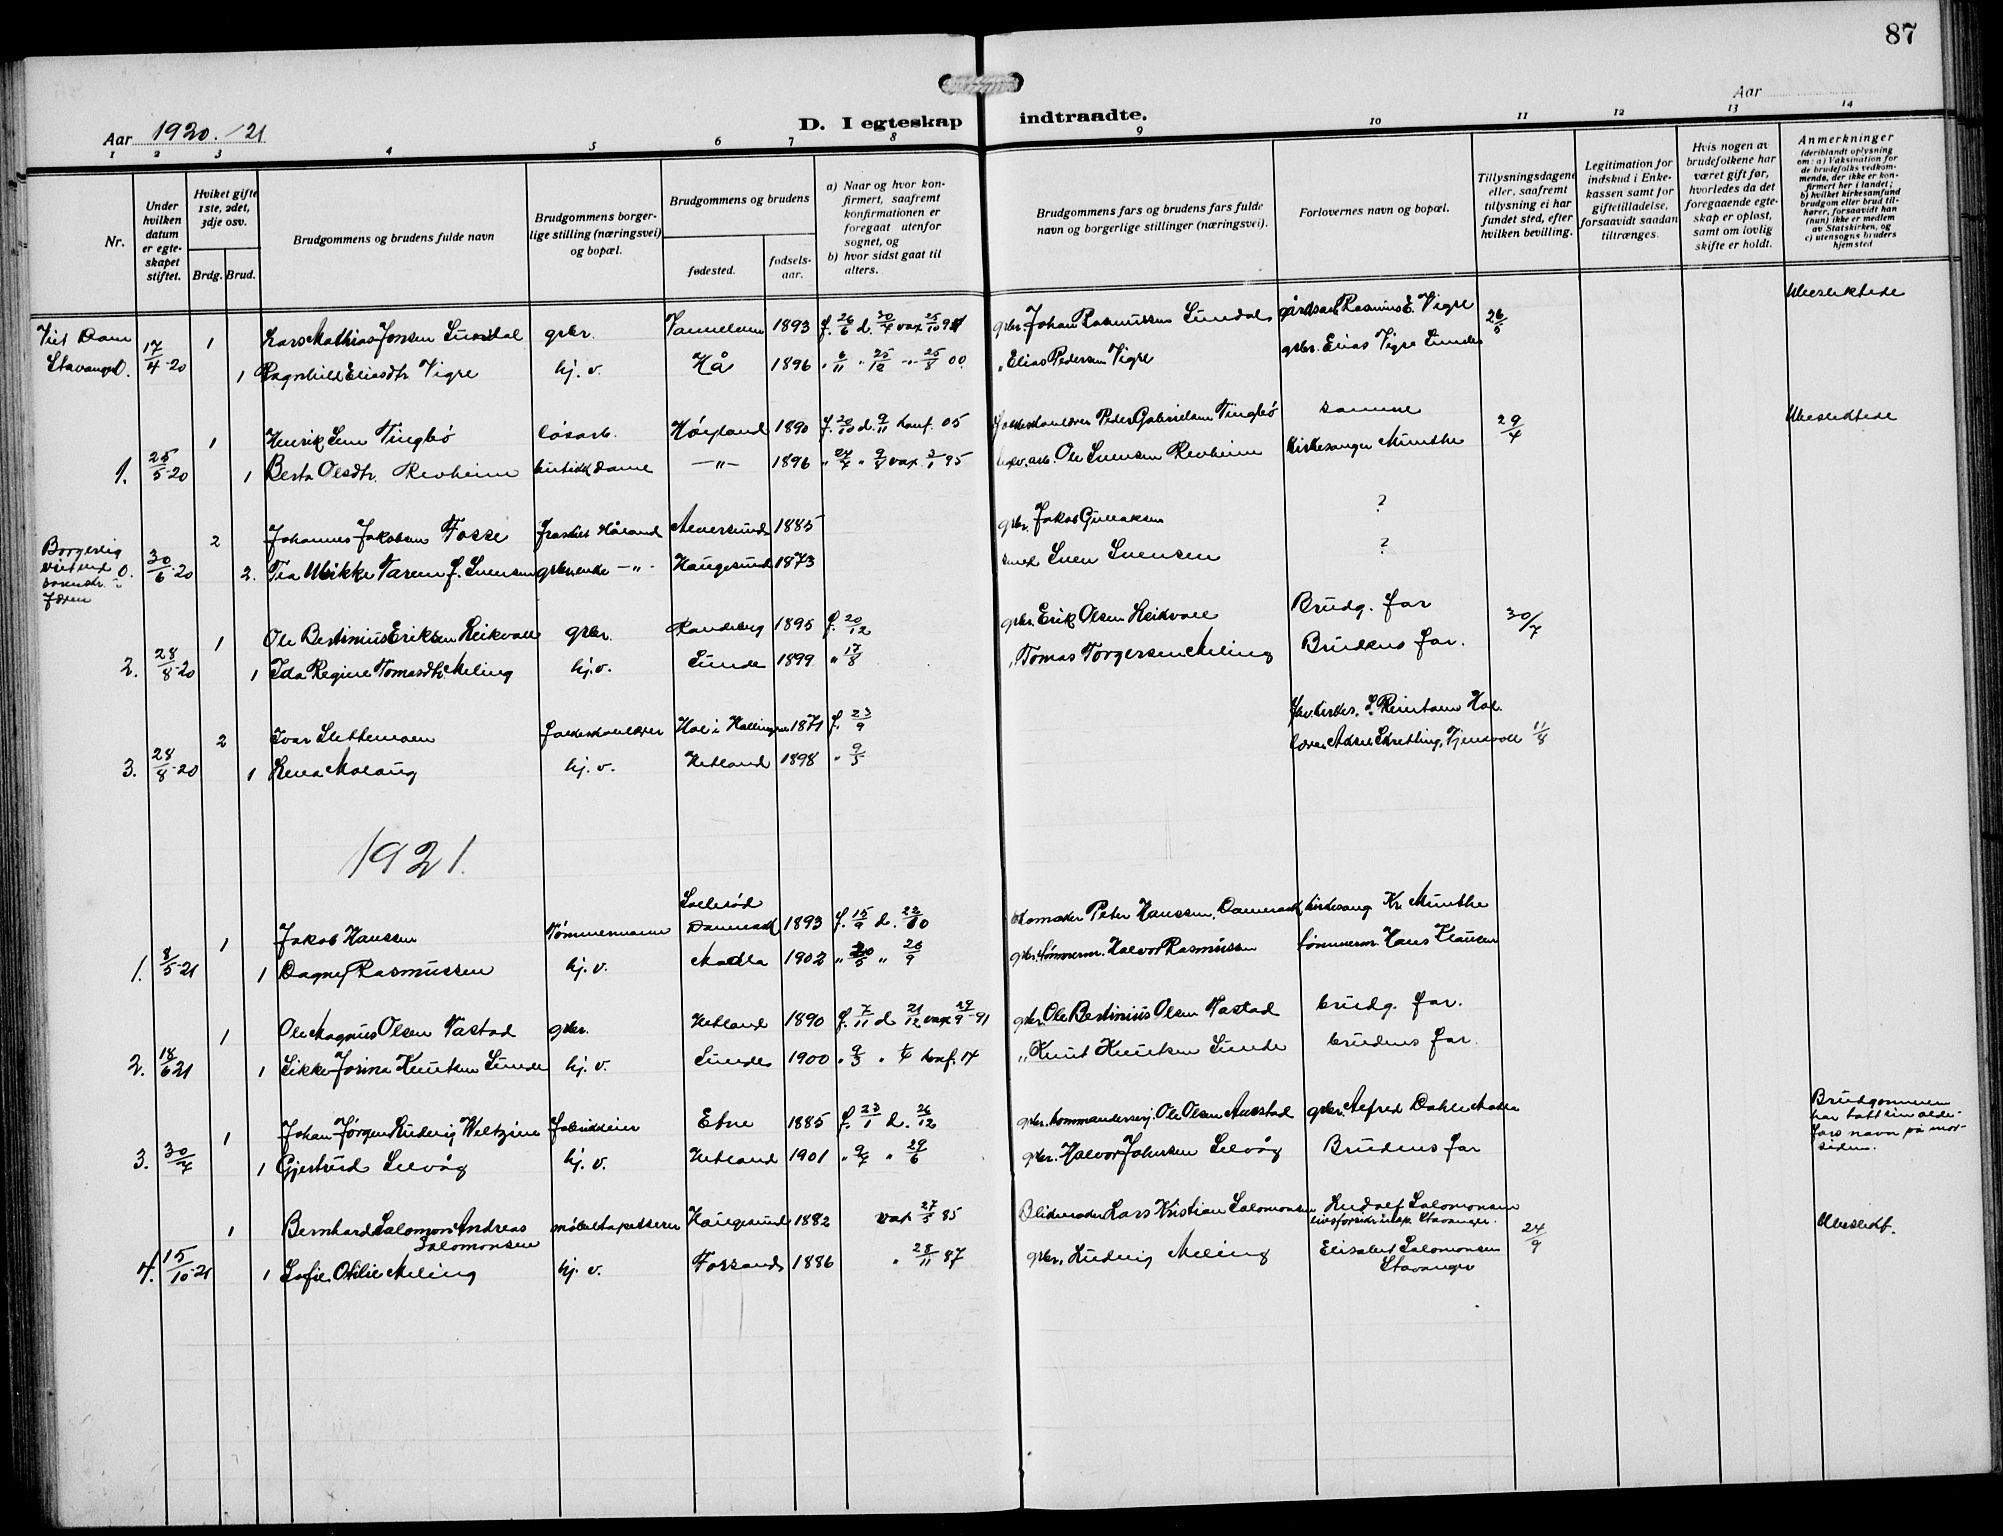 87
Aar 1920./21
D. I egteskap indtraadte.
Aar
1 2 3 4 5 6 7 8 9 10 11 12 13 14
Nr.
Under hvilken datum er egteskapet stiftet.
Hvilket gifte 1ste, 2det, 3dje osv.
Brdg. Brud.
Brudgommens og brudens fulde navn
Brudgommens borgerlige stilling (næringsvei) og bopæl.
Brudgommens og brudens
fødested.
fødselsaar.
a) Naar og hvor konfirmert, saafremt konfirmationen er foregaat utenfor sognet, og
b) hvor sidst gaat til alters.
Brudgommens fars og brudens fars fulde navn og borgerlige stillinger (næringsvei).
Forlovernes navn og bopæl.
Tillysningsdagene eller, saafremt tillysning ei har fundet sted, efter hvilken bevilling.
Legitimation for indskud i Enkekassen samt for giftetilladelse, forsaavidt saadan tiltrænges.
Hvis nogen av brudefolkene har været gift før, hvorledes da det foregaaende egteskap er opløst, samt om lovlig skifte er holdt.
Anmerkninger
(deriblandt oplysning om: a) Vaksination for de brudefolks vedkommende, der ikke er konfirmert her i landet; b) hvilket kirkesamfund brudgom eller brud tilhører, forsaavidt han (hun) ikke er medlem av Statskirken, og c) utensogns bruders hjemsted
Viet Dom Stavanger 0. 17/4-20 1 Lars Mathias Jonsen Sundal grbr. 1893 f. 26/6 d. 30/4 vax 25/10 94 grbr. Johan Rasmussen Sundal gårdsarb. Rasmus E. Vigre 26/3 Ubeslektede
1 Ragnhild Eliasdtr. Vigre hj. v. Hå 1896 " 6/11 " 25/12 " 25/8 00 " Elias Pedersen Vigre grbr. Elias Vigre Sunde
1. 25/5-20 1 Henrik Tingbø løsarb. Høyland 1890 f. 20/10 d. 9/11 konf. 05 Peder Gabrielsen Tingbø samme 29/4 Ubeslektede
1 Berta Olsdtr. Revheim dame —"— 1896 " 24/7 " 9/8 vax 3/1 95 Ole Svensen Revheim kirkesanger Munthe
Borgerlig viet 0. 30/6-20 2 Johannes Jakobsen Fosse Håland Alversund 1885 grbr. Jakob Gullaksen ?
Jæren
2. Tea Ulrikke Tarem f. Svensen grbr.enke —"— Haugesund 1873 smed Sven Svensen ?
2. 28/8-20 1 Ole Bertinius Eriksen Leikvoll grbr. Randeberg 1895 f. 20/12 grbr. Erik Olsen Leikvoll Brudg. far 30/7
1 Ida Regine Tomasdtr. Meling hj. v. Sunde 1899 " 17/8 " Tomas Torgersen Meling Brudens far.
3. 28/8-20 2 Ivar Slettemoen folkeskolelærer Hol i Hallingdal 1871 f. 23/9 11/8
1 Lena Malaug hj. v. Hetland 1898 " 9/3
1921.
1. 8/5-21 1 Jakob Hanssen Tømmermann Danmark 1893 f. 15/9 d. 22/10 skomaker Peter Hanssen, Danmark kirkesang. Kr. Munthe
1 Dagney Rasmussen hj. v. Madla 1902 " 20/5 " 26/9 grbr. tømmerm. Halvor Rasmussen tømmerm. Hans Klausen
2. 18/6 21 1 Ole Magnus Olsen Tastad grbr. Hetland 1890 f. 7/11 d 21/12 vax 29/9-91 grbr. Ole Bertinius Olsen Tastad brudg. far.
1 Sikke Jorine Knutsen Sunde hj. v. Sunde 1900 " 9/3 " 1/4 konf. 14 " Knut Knutsen Sunde brudens far.
3. 30/7 1 Johan Jørgen Ludvig Weltzine fabrikkeier Etne 1885 f. 23/1 d. 26/12 Ole Olsen grbr. Alfred Dahle Madla Brudgommen har tatt sin oldefars navn på morsiden.
1 Gjertrud Selvåg hj. v. Hetland 1901 " 9/7 " 29/6 grbr. Halvor Johnsen Selvåg Brudens far
4. 15/10-21 1 Bernhard Salomon Andreas Salomonsen møbeltapetserer Haugesund 1882 vax 27/5 85 Lars Kristian Salomonsen Rudolf Salomonsen livsforsikr.insp. Stavanger. 24/9 Ubeslekt.
1 Sofie Otilie Meling hj. v. Forsand 1886 " 28/11 87 grbr. Ludvig Meling Elisabet Salomonsen Stavanger